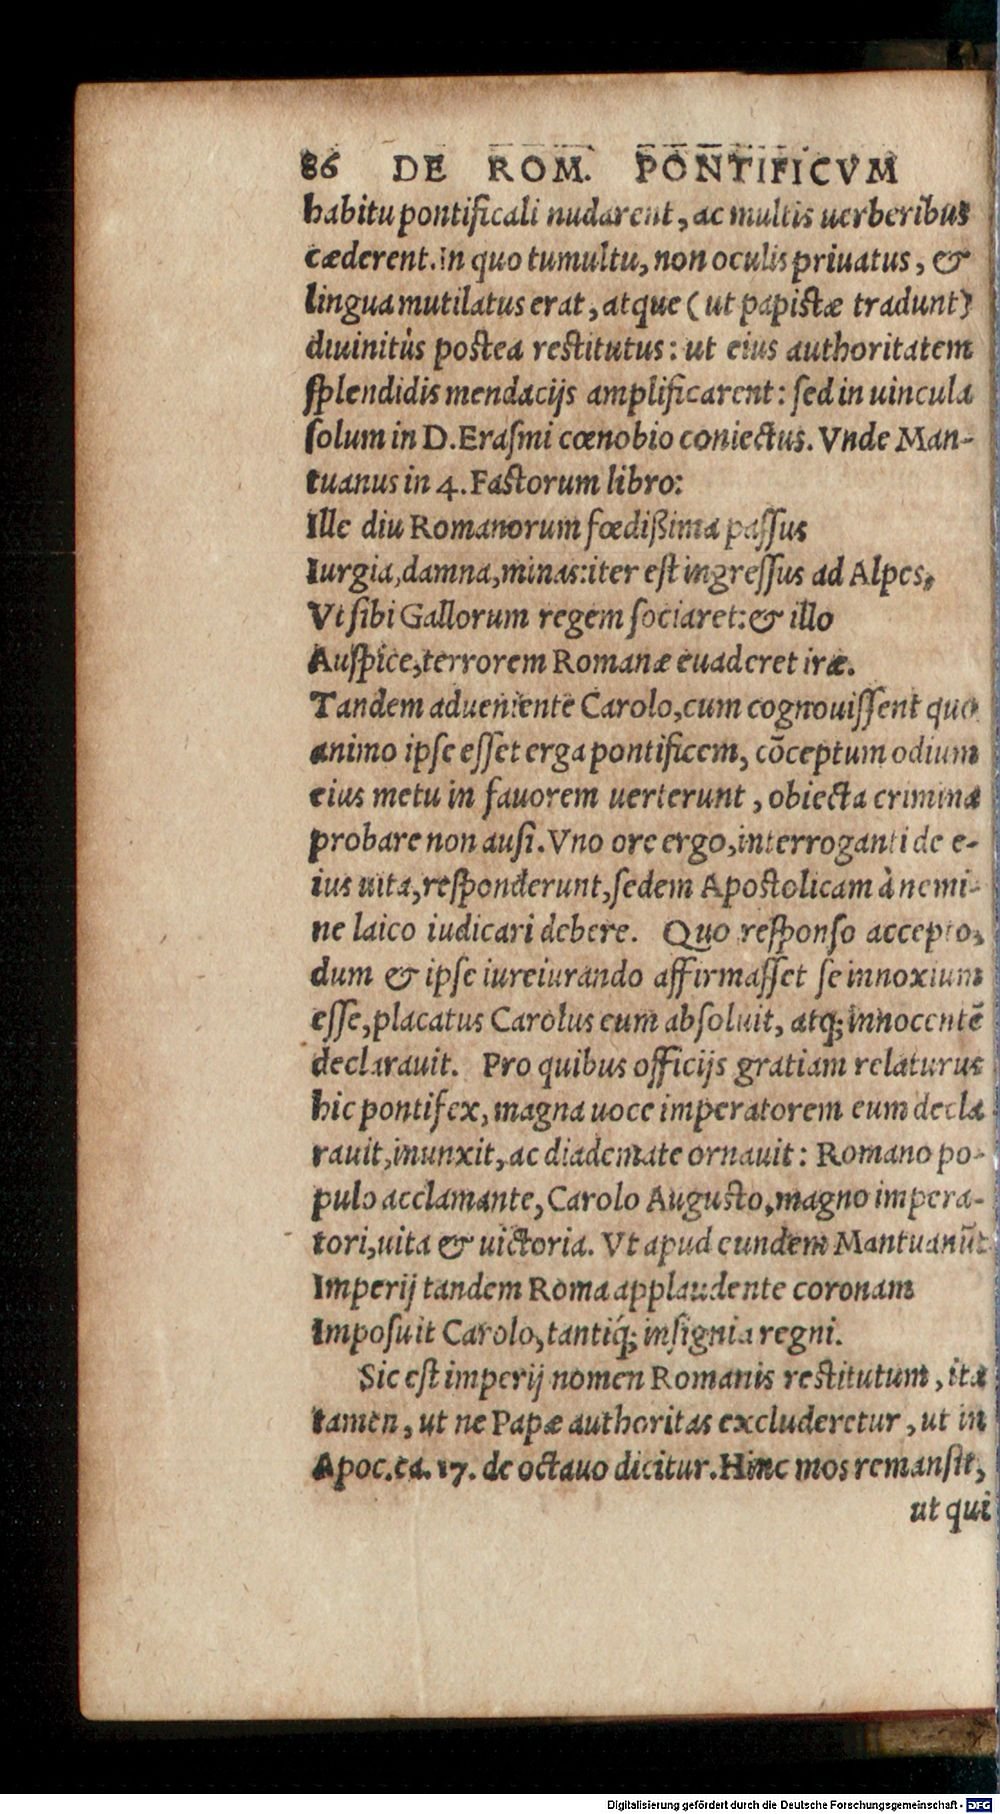 86 DE ROM. PONTIFICVM
habitu pontificali nudarent, ac multis uerberibus
cæderent. In quo tumultu, non oculis priuatus, &
lingua mutilatus erat, atque (ut papistæ tradunt)
diuinitùs postea restitutus: ut eius authoritatem
ſplendidis mendacijs amplificarent: ſed in uincula
ſolum in D. Eraſmi cœnobio coniectus. Vnde Man-
tuanus in 4. Fastorum libro:
Ille diu Romanorum fœdißima paſſus
Iurgia, damna, minas: iter eſt ingreſſus ad Alpes,
Vt ſibi Gallorum regem ſociaret: & illo
Auſpice, terrorem Romanæ euaderet iræ.
Tandem adueniente Carolo, cum cognouiſſent quo
animo ipſe eſſet erga pontificem, cōceptum odium
eius metu in fauorem uerterunt, obiecta crimina
probare non auſi. Vno ore ergo, interroganti de e-
ius uita, reſponderunt, ſedem Apostolicam à nemi-
ne laico iudicari debere. Quo reſponſo accepto,
dum & ipſe iureiurando affirmaſſet ſe innoxium
eſſe, placatus Carolus eum abſoluit, atq; innocentē
declarauit. Pro quibus officijs gratiam relaturus
hic pontifex, magna uoce imperatorem eum decla
rauit, inunxit, ac diademate ornauit: Romano po-
pulo acclamante, Carolo Augusto, magno impera-
tori, uita & uictoria. Vt apud eundem Mantuanū:
Imperij tandem Roma applaudente coronam
Impoſuit Carolo, tantiq́; inſignia regni.
Sic eſt imperij nomen Romanis restitutum, ita
tamen, ut ne Papæ authoritas excluderetur, ut in
Apoc. ca. 17. de octauo dicitur. Hinc mos remanſit,
ut qui
Digitalisierung gefördert durch die Deutsche Forschungsgemeinschaft - DFG